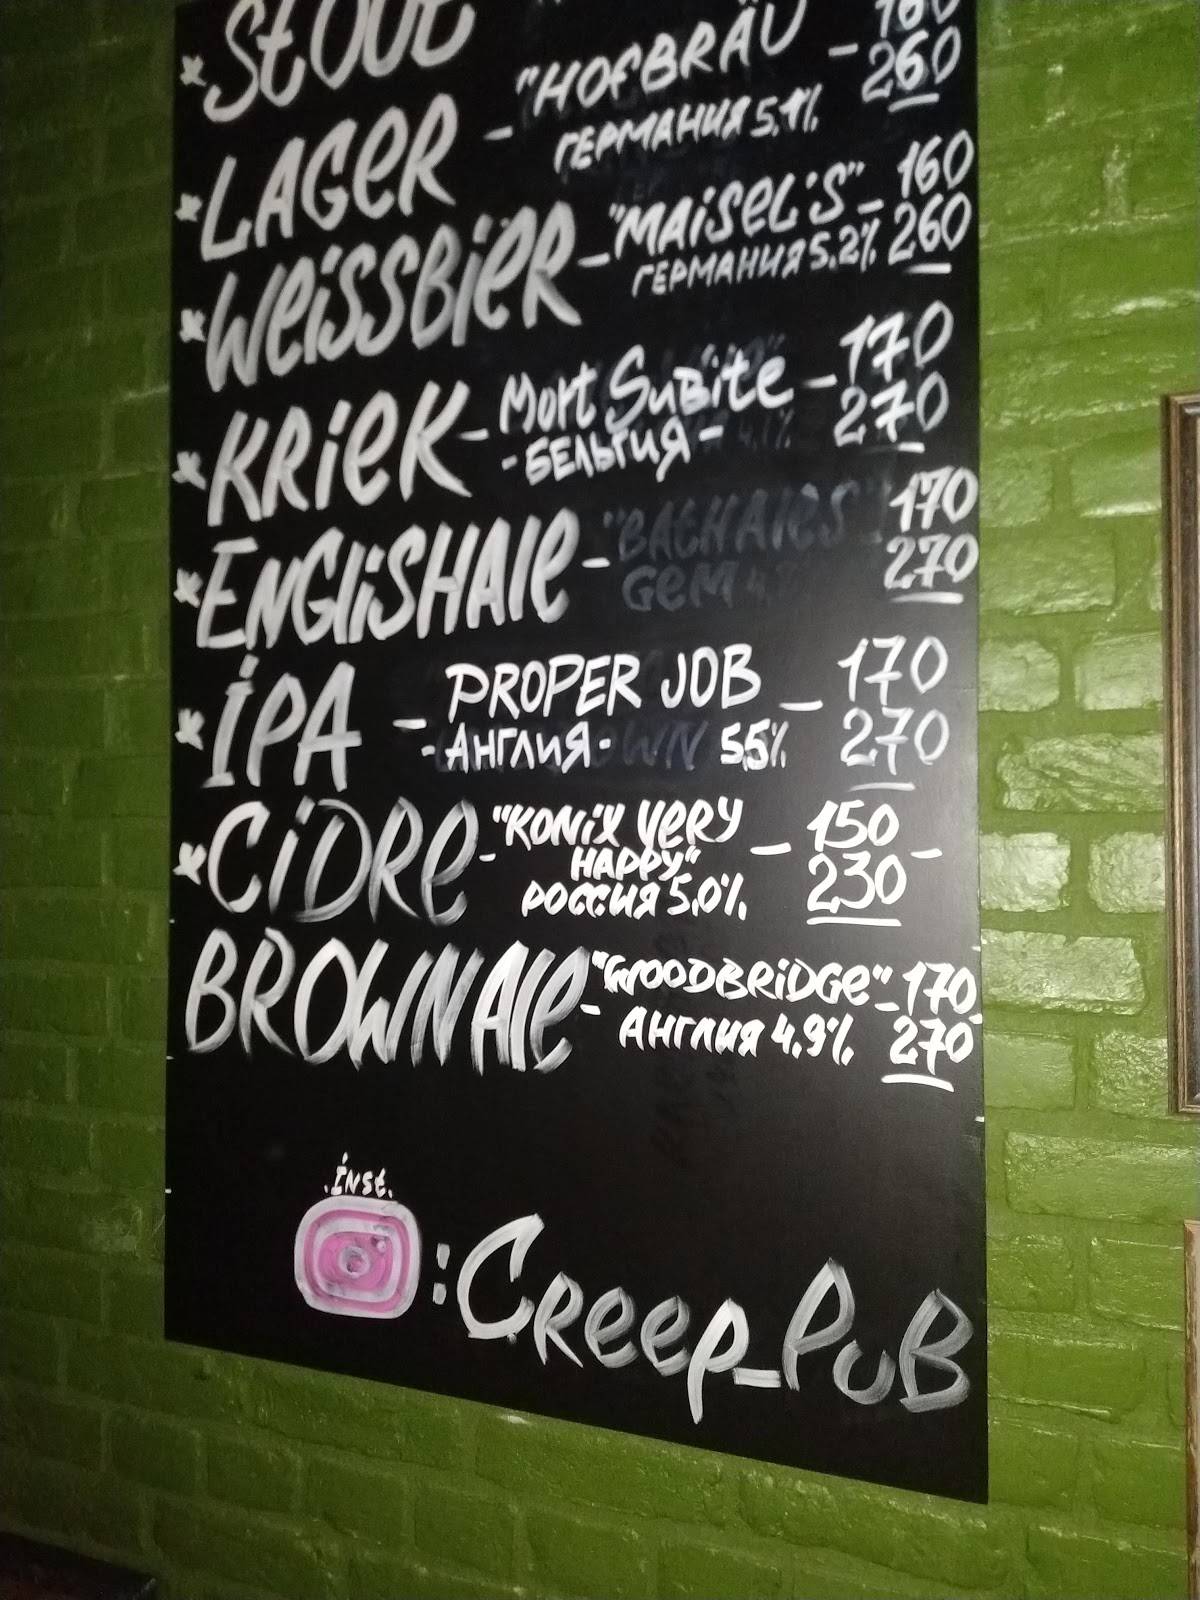 * Stout
* LAGER - "HOFBRÄU - 160
ГЕРМАНИЯ 5.1% 260
* WEISSBIER - "MAISEL'S" - 160
ГЕРМАНИЯ 5.2% 260
* KRIEK - Mort SuBite - 170
- БЕЛЬГИЯ - 270
* ENGLISHALE - 170
270
* IPA - PROPER JOB - 170
- АНГЛИЯ - 5,5% 270
* CIDRE - "KONIX VERY - 150 -
HAPPY" 230
РОССИЯ 5.0%
BROWNALE - "WOODBRIDGE" - 170
АНГЛИЯ 4.9% 270
.inst.
: CREEP_PUB